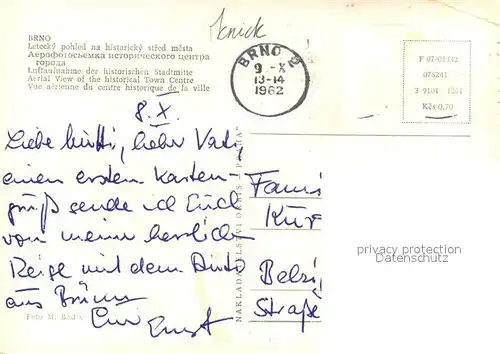 Knick
BRNO
Letecký pohled na historický střed města
Аэрофотосъемка исторического центра
города
Luftaufnahme der historischen Stadtmitte
Aerial View of the historical Town Centre
Vue aérienne du centre historique de la ville
BRNO 2
9.-X
13-14
1962
F 07-01342
078241
3-9101 1261
Kčs 0,70
8. X.
Liebe Mutti, lieber Vati,
einen ersten Karten-
gruß sende ich Euch
von meiner herrlichen
Reise mit dem Auto
aus Brünn
Euer Ernst
Foto M. Budík
NAKLADATELSTVÍ ORBIS PRAHA
Fami
Kur
Belzig
Straße
privacy protection
Datenschutz